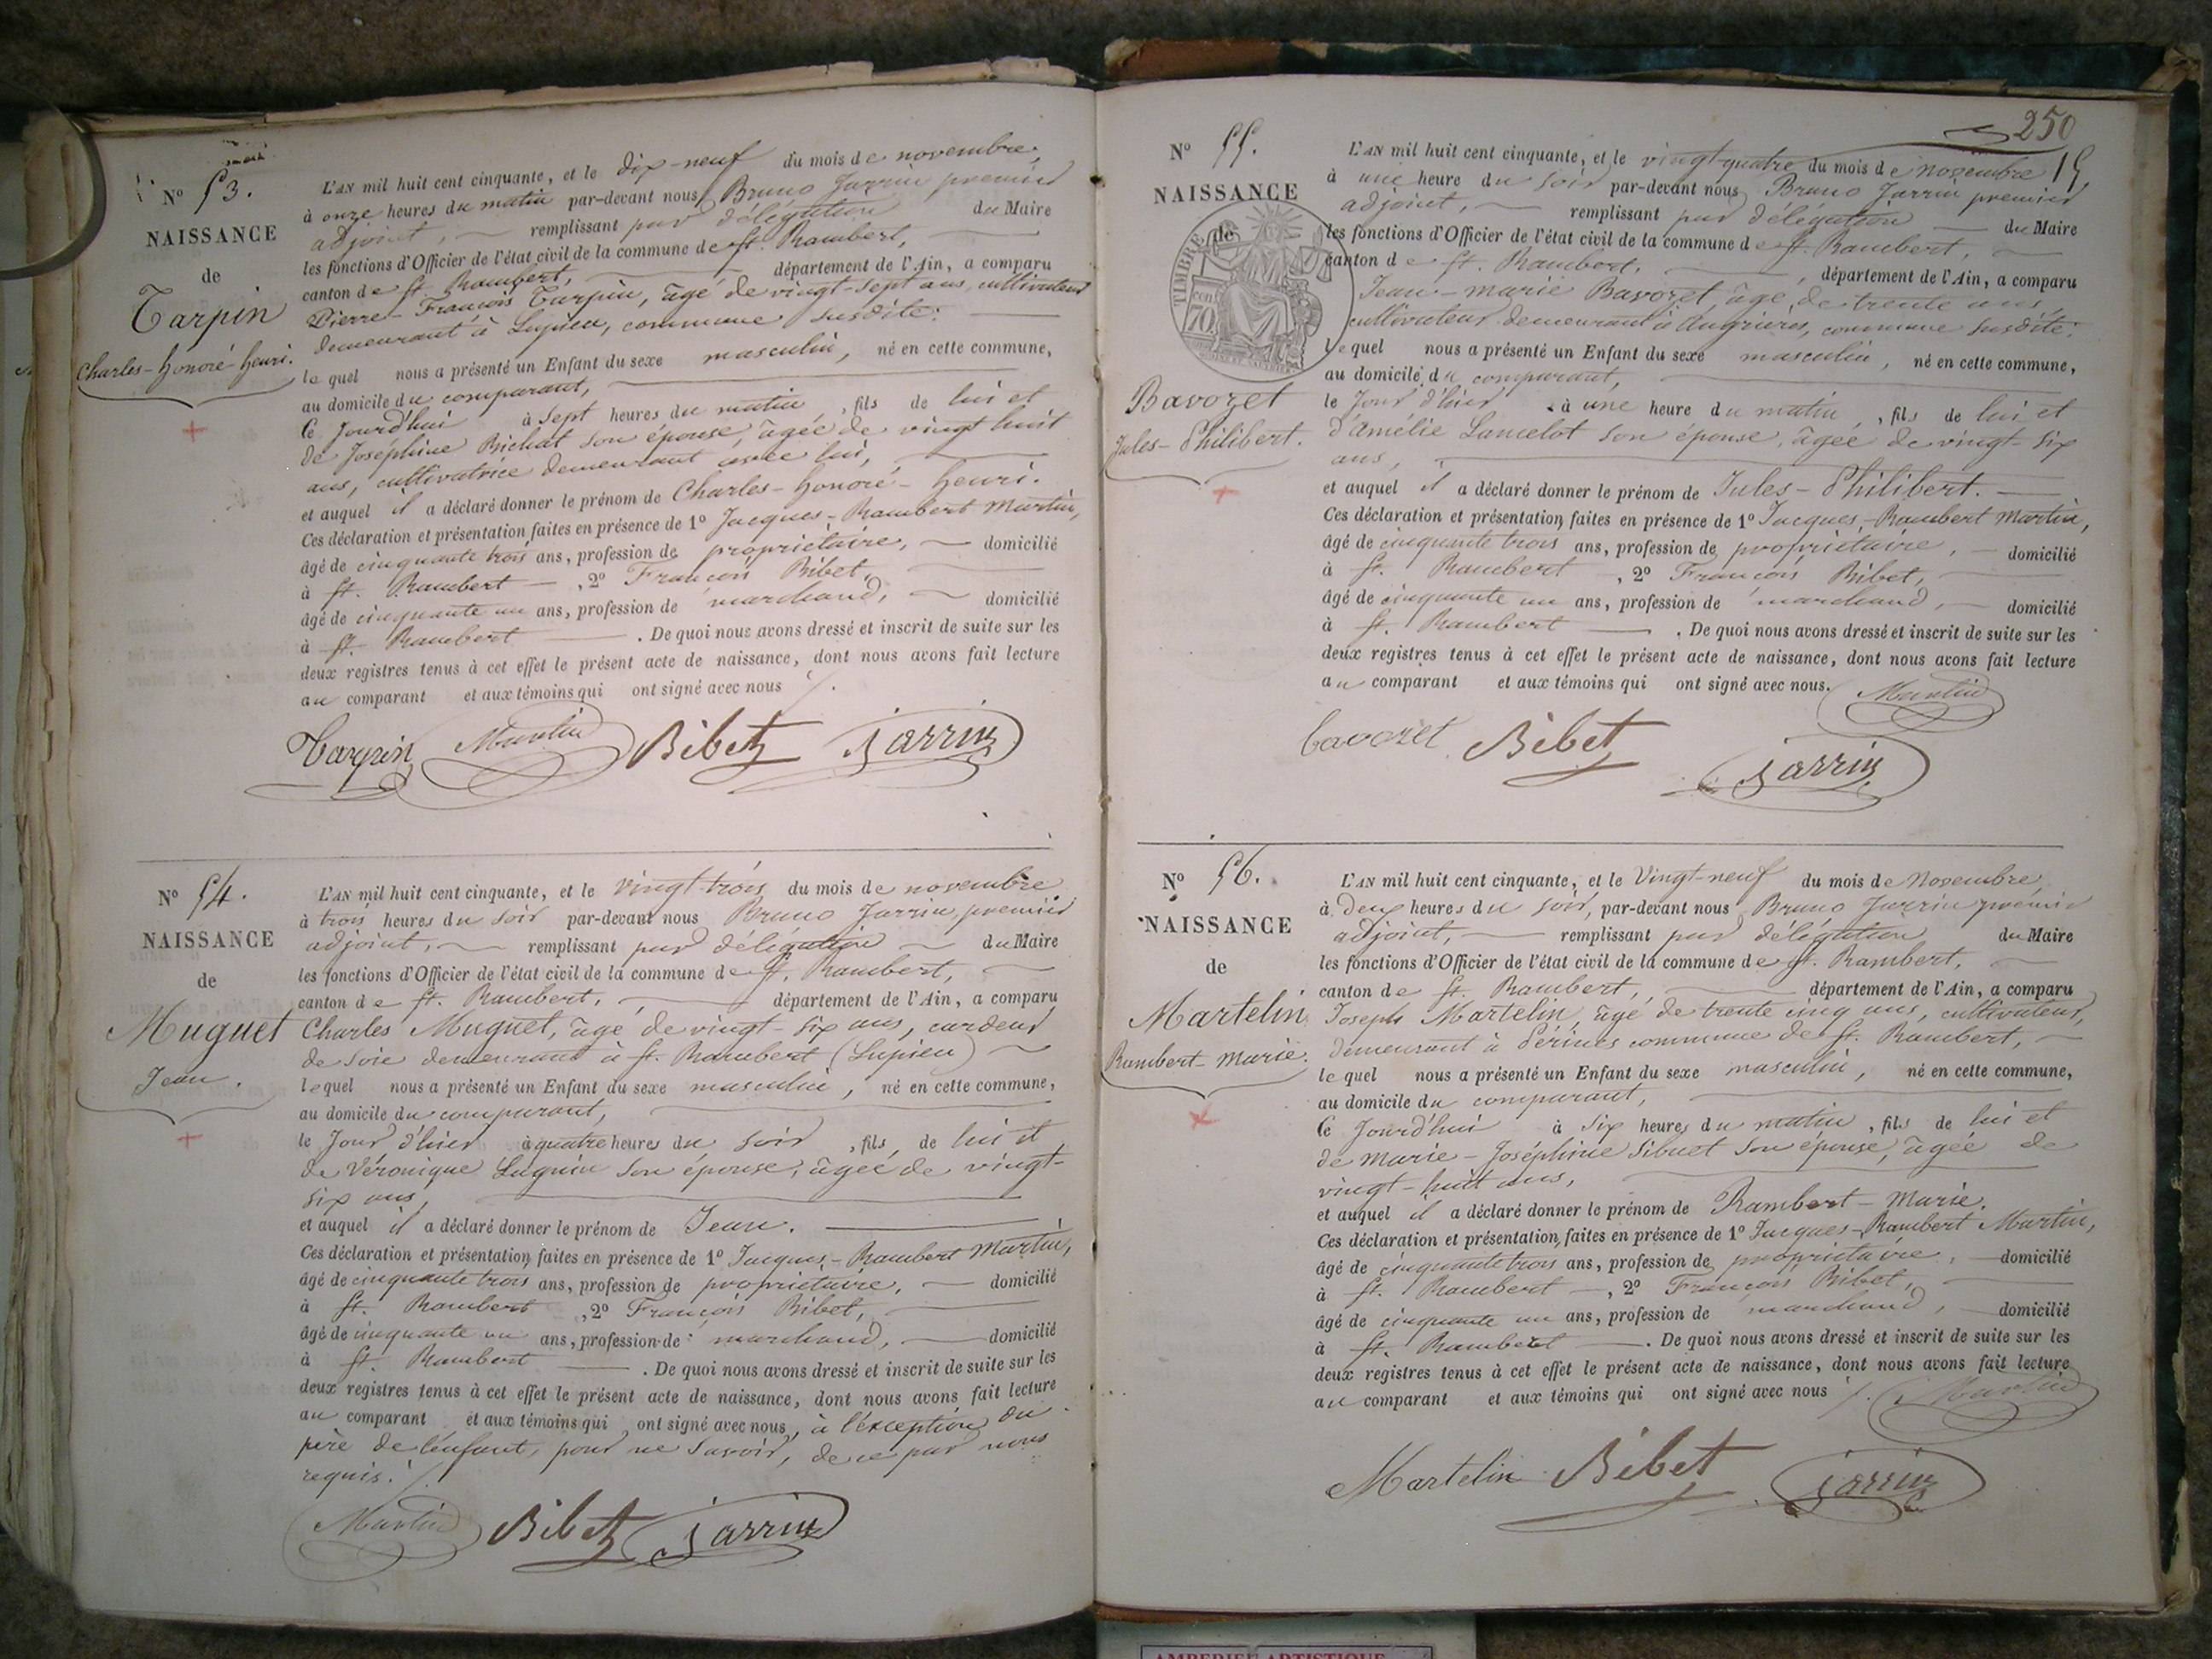 N.º 53.
NAISSANCE
de
Tarpin
Charles-honoré-henri.
L'AN mil huit cent cinquante, et le dix-neuf du mois de novembre,
à onze heures du matin par-devant nous Bruno Jarrin premier
adjoint, remplissant par délégation du Maire
les fonctions d'Officier de l'état civil de la commune de St. Rambert,
canton de St. Rambert, département de l'Ain, a comparu
Pierre-François Tarpin, âgé de vingt-sept ans, cultivateur
demeurant à Lupieu, commune susdite:
lequel nous a présenté un Enfant du sexe masculin, né en cette commune,
au domicile du comparant,
Ce jourd'hui à sept heures du matin, fils de lui et
de Joséphine Bichat son épouse, âgée de vingt huit
ans, cultivatrice demeurant avec lui,
et auquel il a déclaré donner le prénom de Charles-honoré-henri.
Ces déclaration et présentation faites en présence de 1º Jacques-Rambert Martin,
âgé de cinquante trois ans, profession de propriétaire, domicilié
à St. Rambert, 2º François Bibet,
âgé de cinquante un ans, profession de marchand, domicilié
à St. Rambert. De quoi nous avons dressé et inscrit de suite sur les
deux registres tenus à cet effet le présent acte de naissance, dont nous avons fait lecture
au comparant et aux témoins qui ont signé avec nous
Tarpin Martin Bibet Jarrin
Nº 54.
NAISSANCE
de
Muguet
Jean.
L'AN mil huit cent cinquante, et le vingt-trois du mois de novembre
à trois heures du soir par-devant nous Bruno Jarrin, premier
adjoint, remplissant par délégation du Maire
les fonctions d'Officier de l'état civil de la commune de St. Rambert,
canton de St. Rambert, département de l'Ain, a comparu
Charles Muguet, âgé de vingt-six ans, cardeur
de soie demeurant à St. Rambert (Lupieu)
lequel nous a présenté un Enfant du sexe masculin, né en cette commune,
au domicile du comparant,
le Jour d'hier à quatre heures du soir, fils de lui et
de Véronique Luguin son épouse, âgée de vingt-
six ans,
et auquel il a déclaré donner le prénom de Jean.
Ces déclaration et présentation faites en présence de 1º Jacques-Rambert Martin,
âgé de cinquante trois ans, profession de propriétaire, domicilié
à St. Rambert, 2º François Bibet,
âgé de cinquante un ans, profession de marchand, domicilié
à St. Rambert. De quoi nous avons dressé et inscrit de suite sur les
deux registres tenus à cet effet le présent acte de naissance, dont nous avons fait lecture
au comparant et aux témoins qui ont signé avec nous, à l'exception du
père de l'enfant, pour ne savoir, de ce par nous
requis.
Martin Bibet Jarrin
250
15
Nº 55.
NAISSANCE
de
TIMBRE
70
Bavozet
Jules-Philibert.
L'AN mil huit cent cinquante, et le vingt-quatre du mois de novembre
à une heure du soir par-devant nous Bruno Jarrin premier
adjoint, remplissant par délégation du Maire
les fonctions d'Officier de l'état civil de la commune de St. Rambert,
canton de St. Rambert, département de l'Ain, a comparu
Jean-marie Bavozet, âgé de trente ans,
cultivateur demeurant à Angrières, commune susdite:
lequel nous a présenté un Enfant du sexe masculin, né en cette commune,
au domicile du comparant,
le Jour d'hier à une heure du matin, fils de lui et
d'amélie Lancelot son épouse, âgée de vingt-six
ans,
et auquel il a déclaré donner le prénom de Jules-Philibert.
Ces déclaration et présentation faites en présence de 1º Jacques-Rambert Martin,
âgé de cinquante trois ans, profession de propriétaire, domicilié
à St. Rambert, 2º François Bibet,
âgé de cinquante un ans, profession de marchand, domicilié
à St. Rambert. De quoi nous avons dressé et inscrit de suite sur les
deux registres tenus à cet effet le présent acte de naissance, dont nous avons fait lecture
au comparant et aux témoins qui ont signé avec nous. Martin
bavozet Bibet
Jarrin
Nº 56.
NAISSANCE
de
Martelin
Rambert-marie.
L'AN mil huit cent cinquante, et le Vingt-neuf du mois de Novembre
à Deux heures du soir, par-devant nous Bruno Jarrin premier
adjoint, remplissant par délégation du Maire
les fonctions d'Officier de l'état civil de la commune de St. Rambert,
canton de St. Rambert, département de l'Ain, a comparu
Joseph Martelin, âgé de trente cinq ans, cultivateur,
demeurant à Sérines commune de St. Rambert,
lequel nous a présenté un Enfant du sexe masculin, né en cette commune,
au domicile du comparant,
Ce Jourd'hui à six heures du matin, fils de lui et
de marie-Joséphine Sibuet son épouse, âgée de
vingt-huit ans,
et auquel il a déclaré donner le prénom de Rambert-marie.
Ces déclaration et présentation faites en présence de 1º Jacques-Rambert Martin,
âgé de cinquante trois ans, profession de propriétaire, domicilié
à St. Rambert, 2º François Bibet,
âgé de cinquante un ans, profession de marchand, domicilié
à St. Rambert. De quoi nous avons dressé et inscrit de suite sur les
deux registres tenus à cet effet le présent acte de naissance, dont nous avons fait lecture
au comparant et aux témoins qui ont signé avec nous Martin
Martelin Bibet Jarrin
AMBERIEU ARTISTIQUE